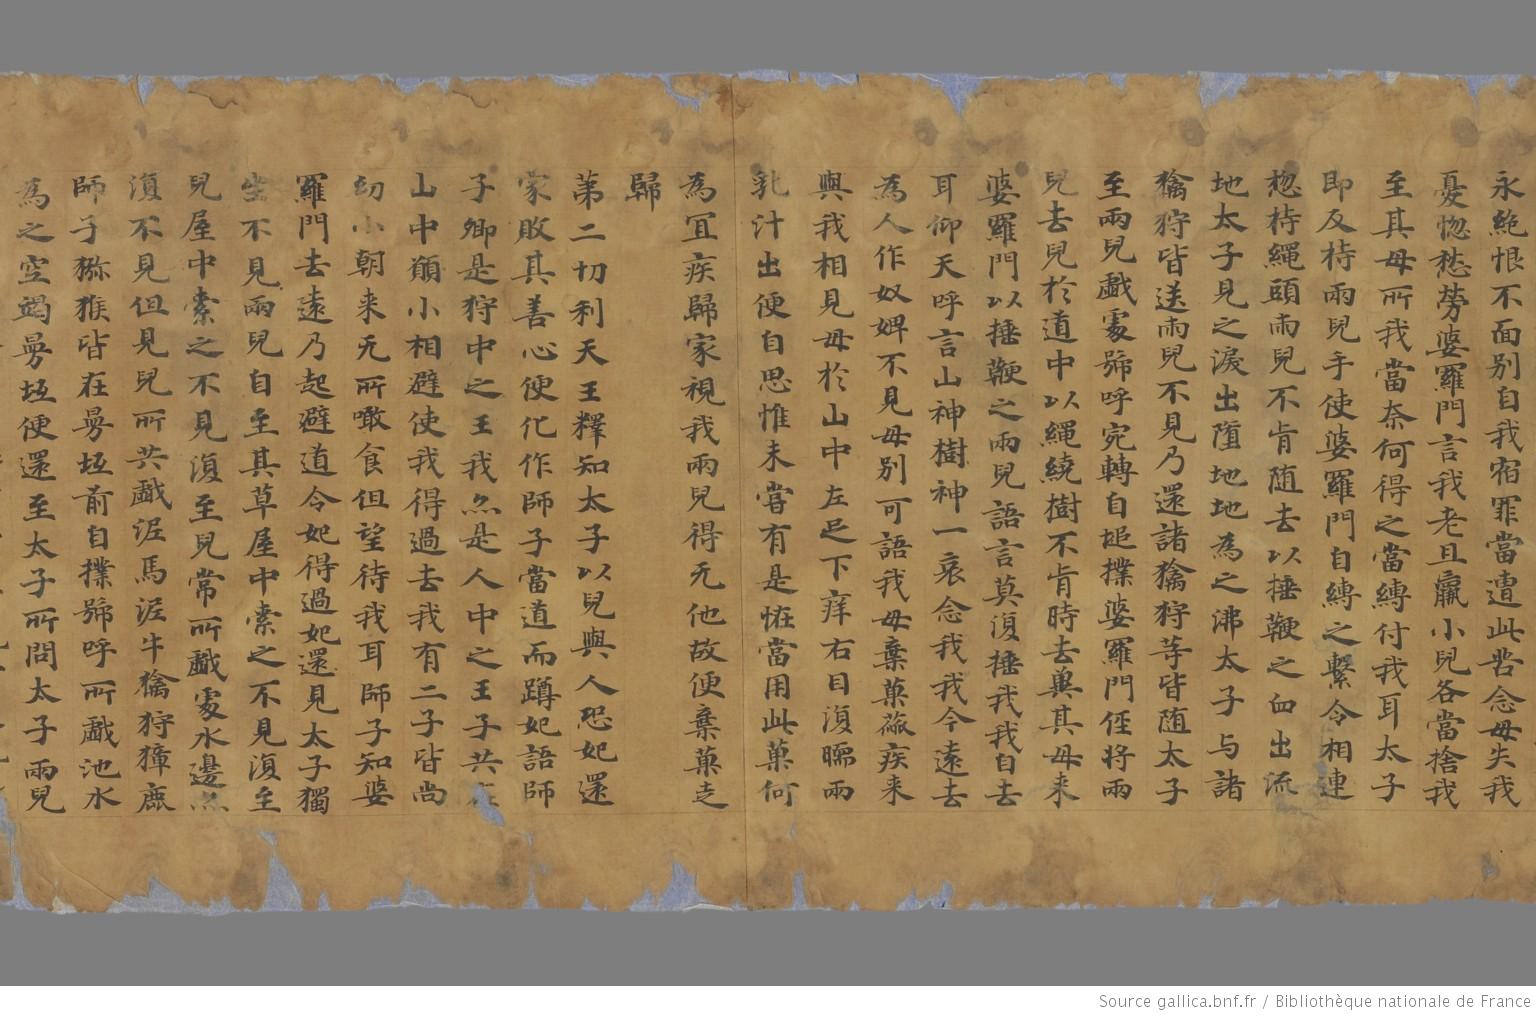 永絶恨不面別自我宿罪當遭此苦念母失我
憂惚愁勞婆羅門言我老且羸小兒各當捨我
至其母所我當奈何得之當縛付我耳太子
即反持兩兒手使婆羅門自縛之繫令相連
惣持繩頭兩兒不肯随去以捶鞭之血出流
地太子見之淚出墮地地為之沸太子与諸
禽狩皆送兩兒不見乃還諸禽狩等皆随太子
至兩兒戲處號呼宛轉自搥撲婆羅門侄將兩
兒去兒於道中以繩繞樹不肯時去兾其母来
婆羅門以捶鞭之兩兒語言莫復捶我我自去
耳仰天呼言山神樹神一哀念我我今遠去
為人作奴婢不見母別可語我母棄菓蓏疾来
與我相見母於山中左足下痒右目復瞤兩
乳汁出便自思惟未嘗有是恠當用此菓何
為冝疾歸家視我兩兒得无他故便棄菓走
歸
第二忉利天王釋知太子以兒與人恐妃還
家敗其善心便化作師子當道而蹲妃語師
子卿是狩中之王我亦是人中之王子共在
山中願小相避使我得過去我有二子皆尚
幼小朝来无所噉食但望待我耳師子知婆
羅門去遠乃起避道令妃得過妃還見太子獨
坐不見兩兒自至其草屋中索之不見復至
兒屋中索之不見復至兒常所戲處水邊亦
復不見但見兒所共戲泥馬泥牛禽狩獐鹿
師子猕猴皆在曼坻前自撲號呼所戲池水
為之空竭曼坻便還至太子所問太子兩兒
Source gallica.bnf.fr / Bibliothèque nationale de France